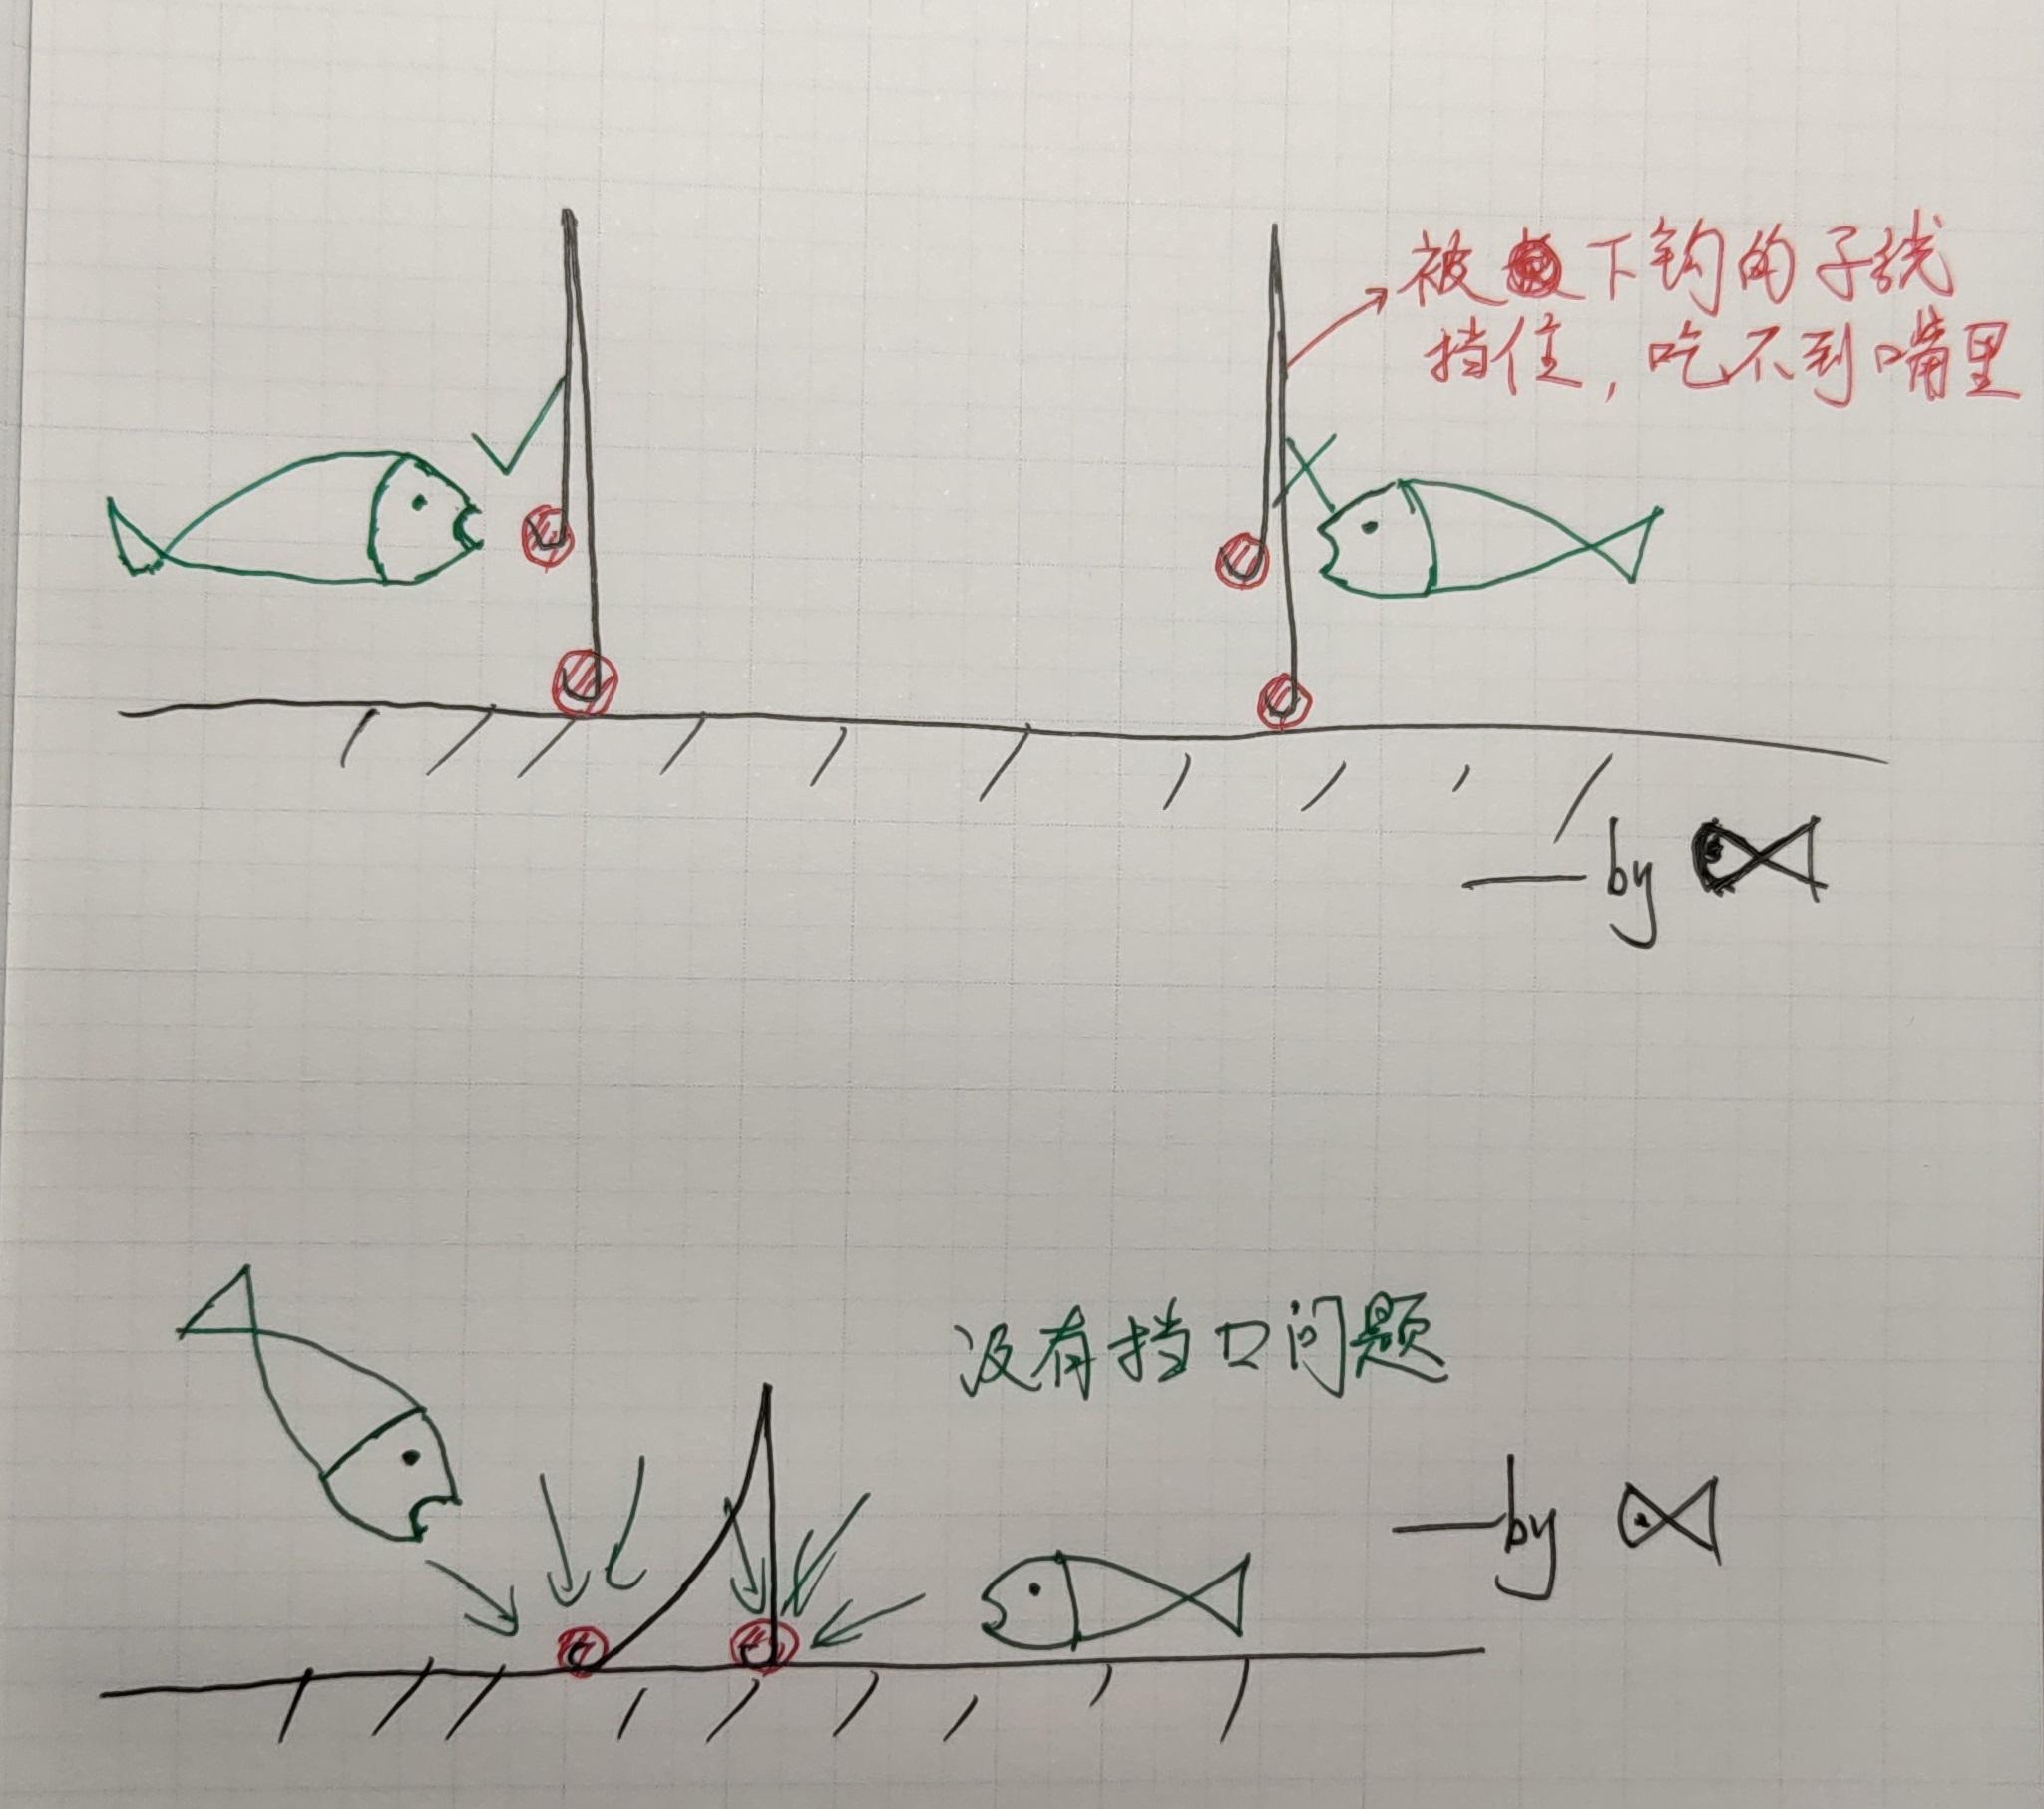 被下钩的子线
挡住，吃不到嘴里
——by
没有挡口问题
——by